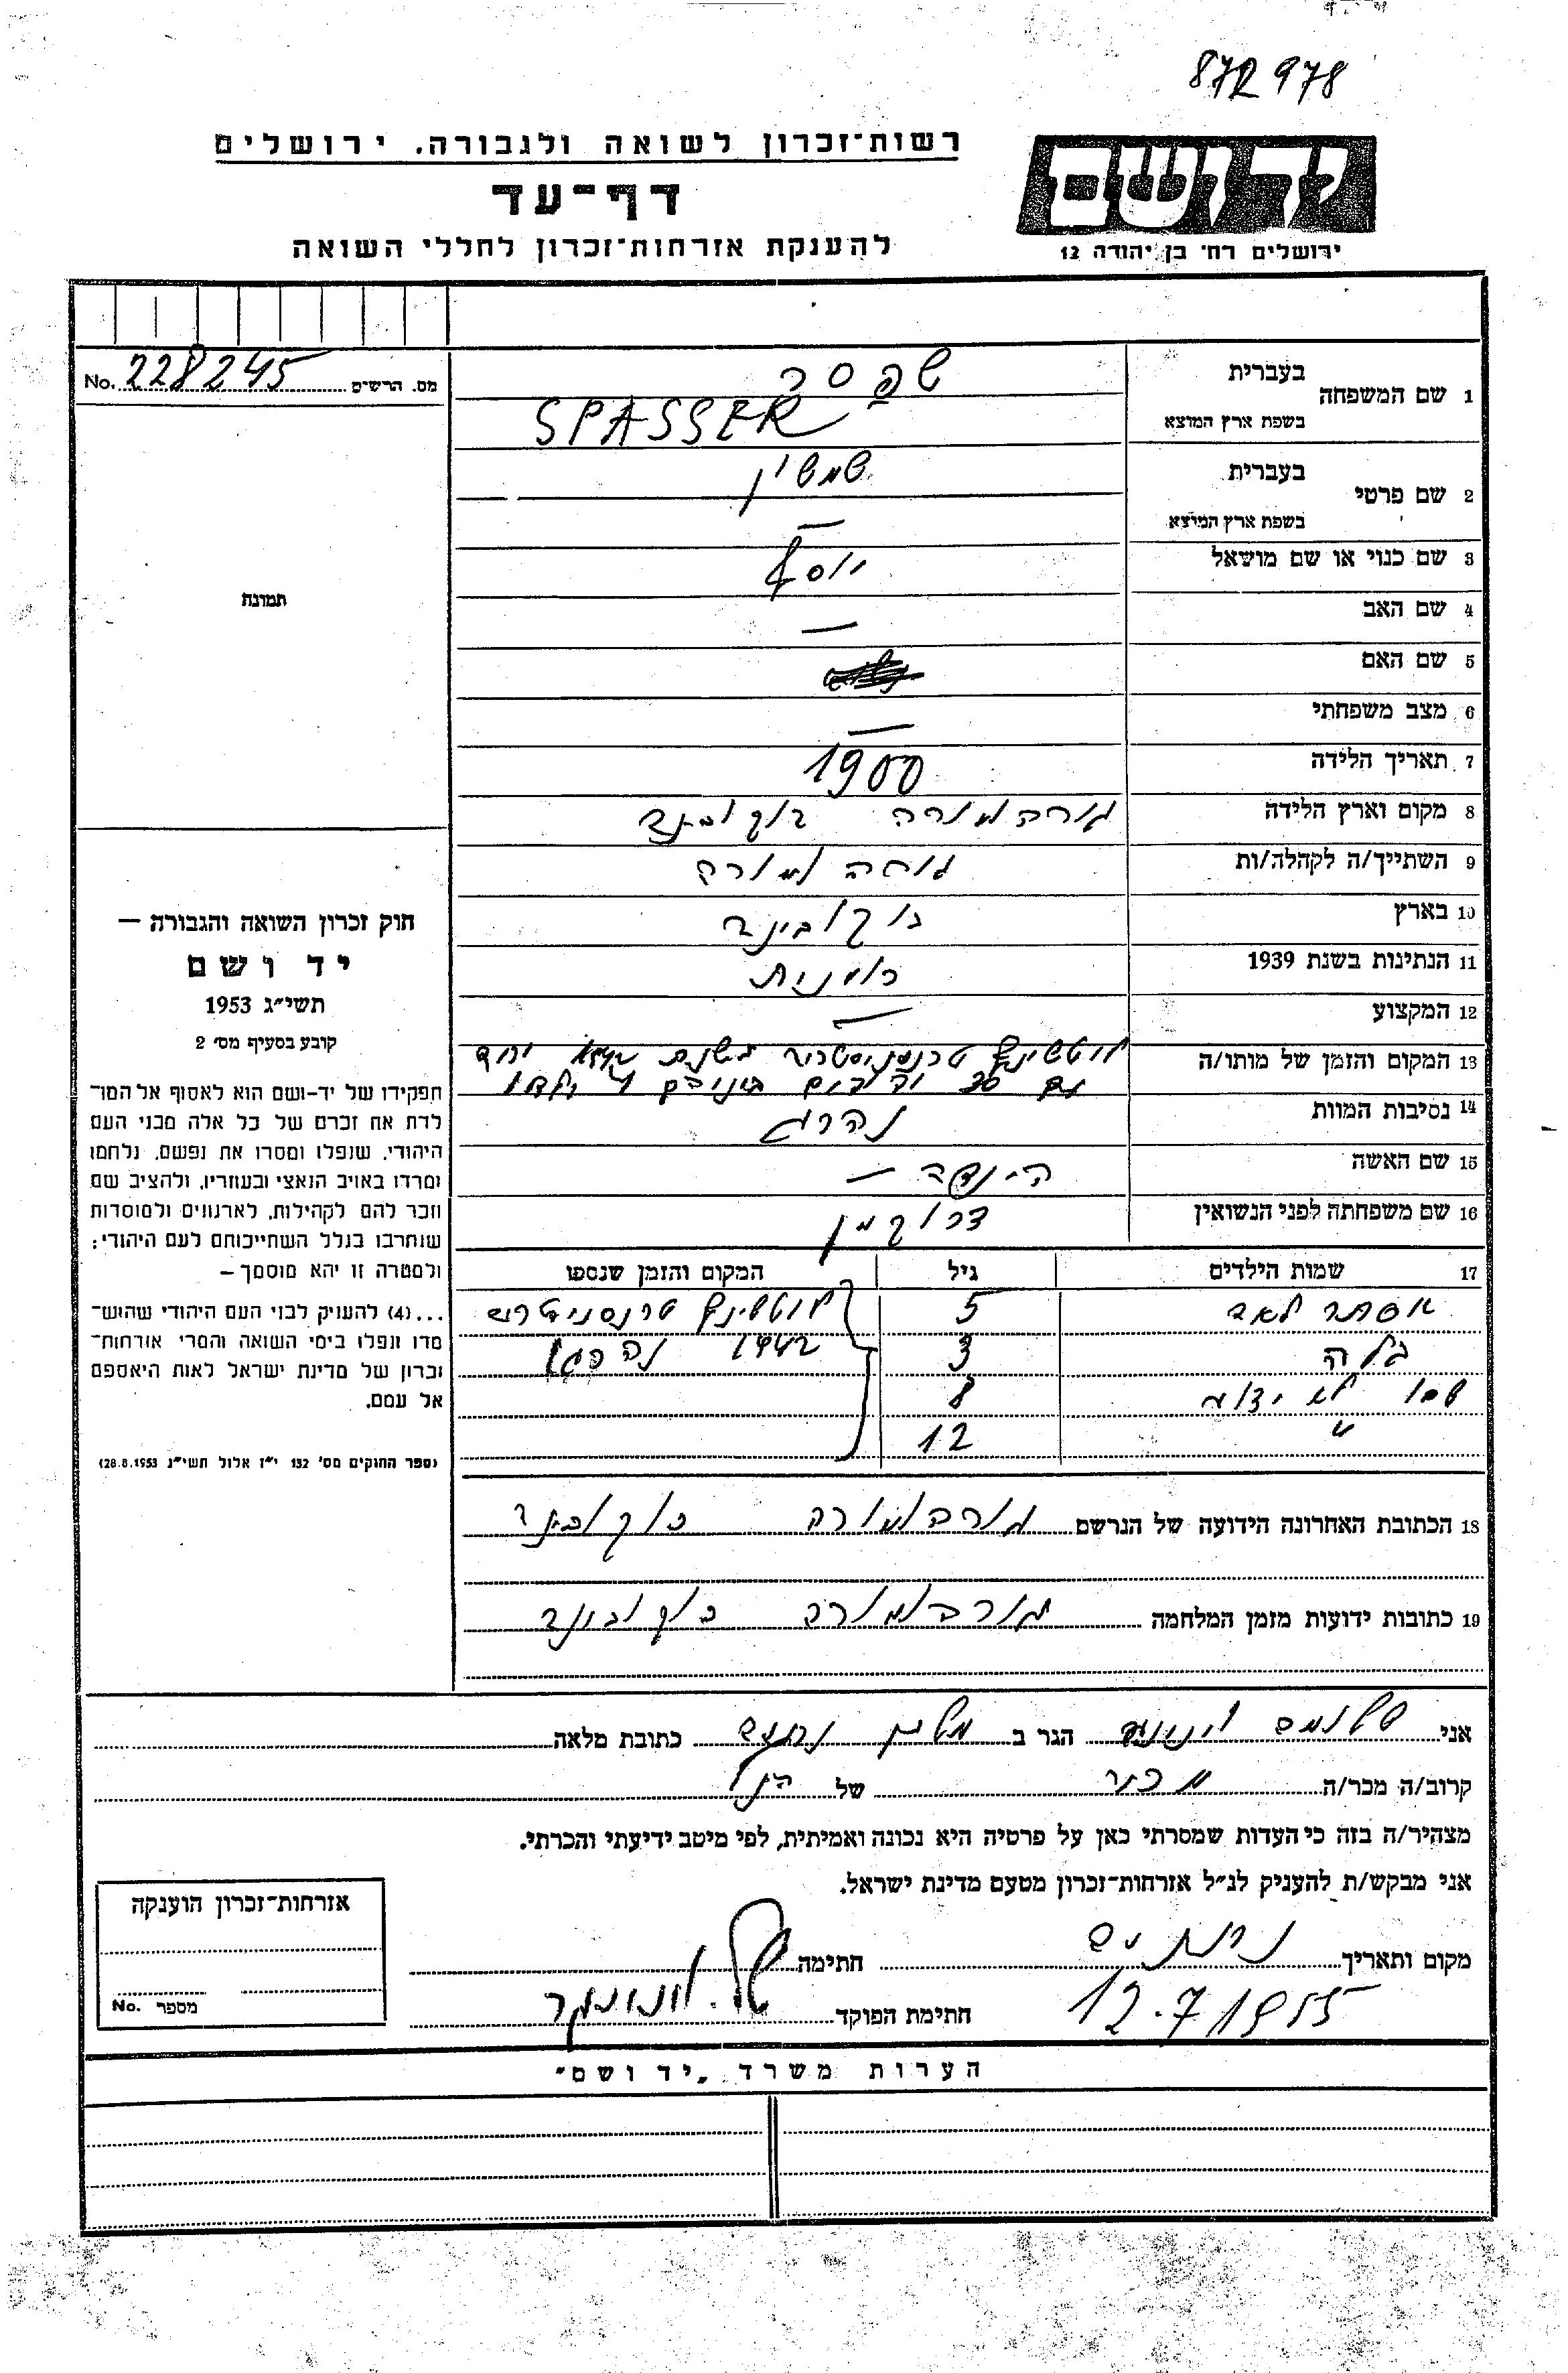 872978
רשות־זכרון לשואה ולגבורה, ירושלים
יד ושם
דף־עד
להענקת אזרחות־זכרון לחללי השואה
ירושלים רח' בן יהודה 12
מס. הרשים No. 228245
1 שם המשפחה בעברית שפסר
בשפת ארץ המוצא SPASSER
2 שם פרטי בעברית שמשון
בשפת ארץ המוצא —
3 שם כנוי או שם מושאל יוסף
4 שם האב —
5 שם האם
6 מצב משפחתי —
7 תאריך הלידה 1900
8 מקום וארץ הלידה גורהומורה בוקובינה
9 השתייך/ה לקהלה/ות גורהומורה
10 בארץ בוקובינה
11 הנתינות בשנת 1939 רומנית
12 המקצוע —
13 המקום והזמן של מותו/ה טרנסניסטריה בשנת יחד
עם 30 יהודים ביניהם 4 ילדיו
14 נסיבות המוות נהרג
15 שם האשה הינדה —
16 שם משפחתה לפני הנשואין דרוקמן
17 שמות הילדים גיל המקום והזמן שנספו
אסתר לאה 5 טרנסניסטריה
בלה 3 1942 נהרגו
שמו לא ידוע 8
" 12
18 הכתובת האחרונה הידועה של הנרשם גורהומורה בוקובינה
19 כתובות ידועות מזמן המלחמה גורהומורה בוקובינה
תמונה
חוק זכרון השואה והגבורה —
יד ושם
תשי״ג 1953
קובע בסעיף מס' 2
תפקידו של יד-ושם הוא לאסוף אל המו־
לדת את זכרם של כל אלה מבני העם
היהודי, שנפלו ומסרו את נפשם, נלחמו
ומרדו באויב הנאצי ובעוזריו, ולהציב שם
וזכר להם לקהילות, לארגונים ולמוסדות
שנחרבו בגלל השתייכותם לעם היהודי;
ולמטרה זו יהא מוסמך —
...(4) להעניק לבני העם היהודי שהוש־
מדו ונפלו בימי השואה והמרי אזרחות־
זכרון של מדינת ישראל לאות היאספם
אל עמם.
(ספר החוקים מס' 132 י״ז אלול תשי״ג 28.8.1953)
אני הגר ב נתניה כתובת מלאה
קרוב/ה מכר/ה מכר של הנ״ל
מצהיר/ה בזה כי העדות שמסרתי כאן על פרטיה היא נכונה ואמיתית, לפי מיטב ידיעתי והכרתי.
אני מבקש/ת להעניק לנ״ל אזרחות־זכרון מטעם מדינת ישראל.
מקום ותאריך נתניה חתימה
12.7.1955 חתימת הפוקד
אזרחות־זכרון הוענקה
מספר No.
הערות משרד „יד ושם"